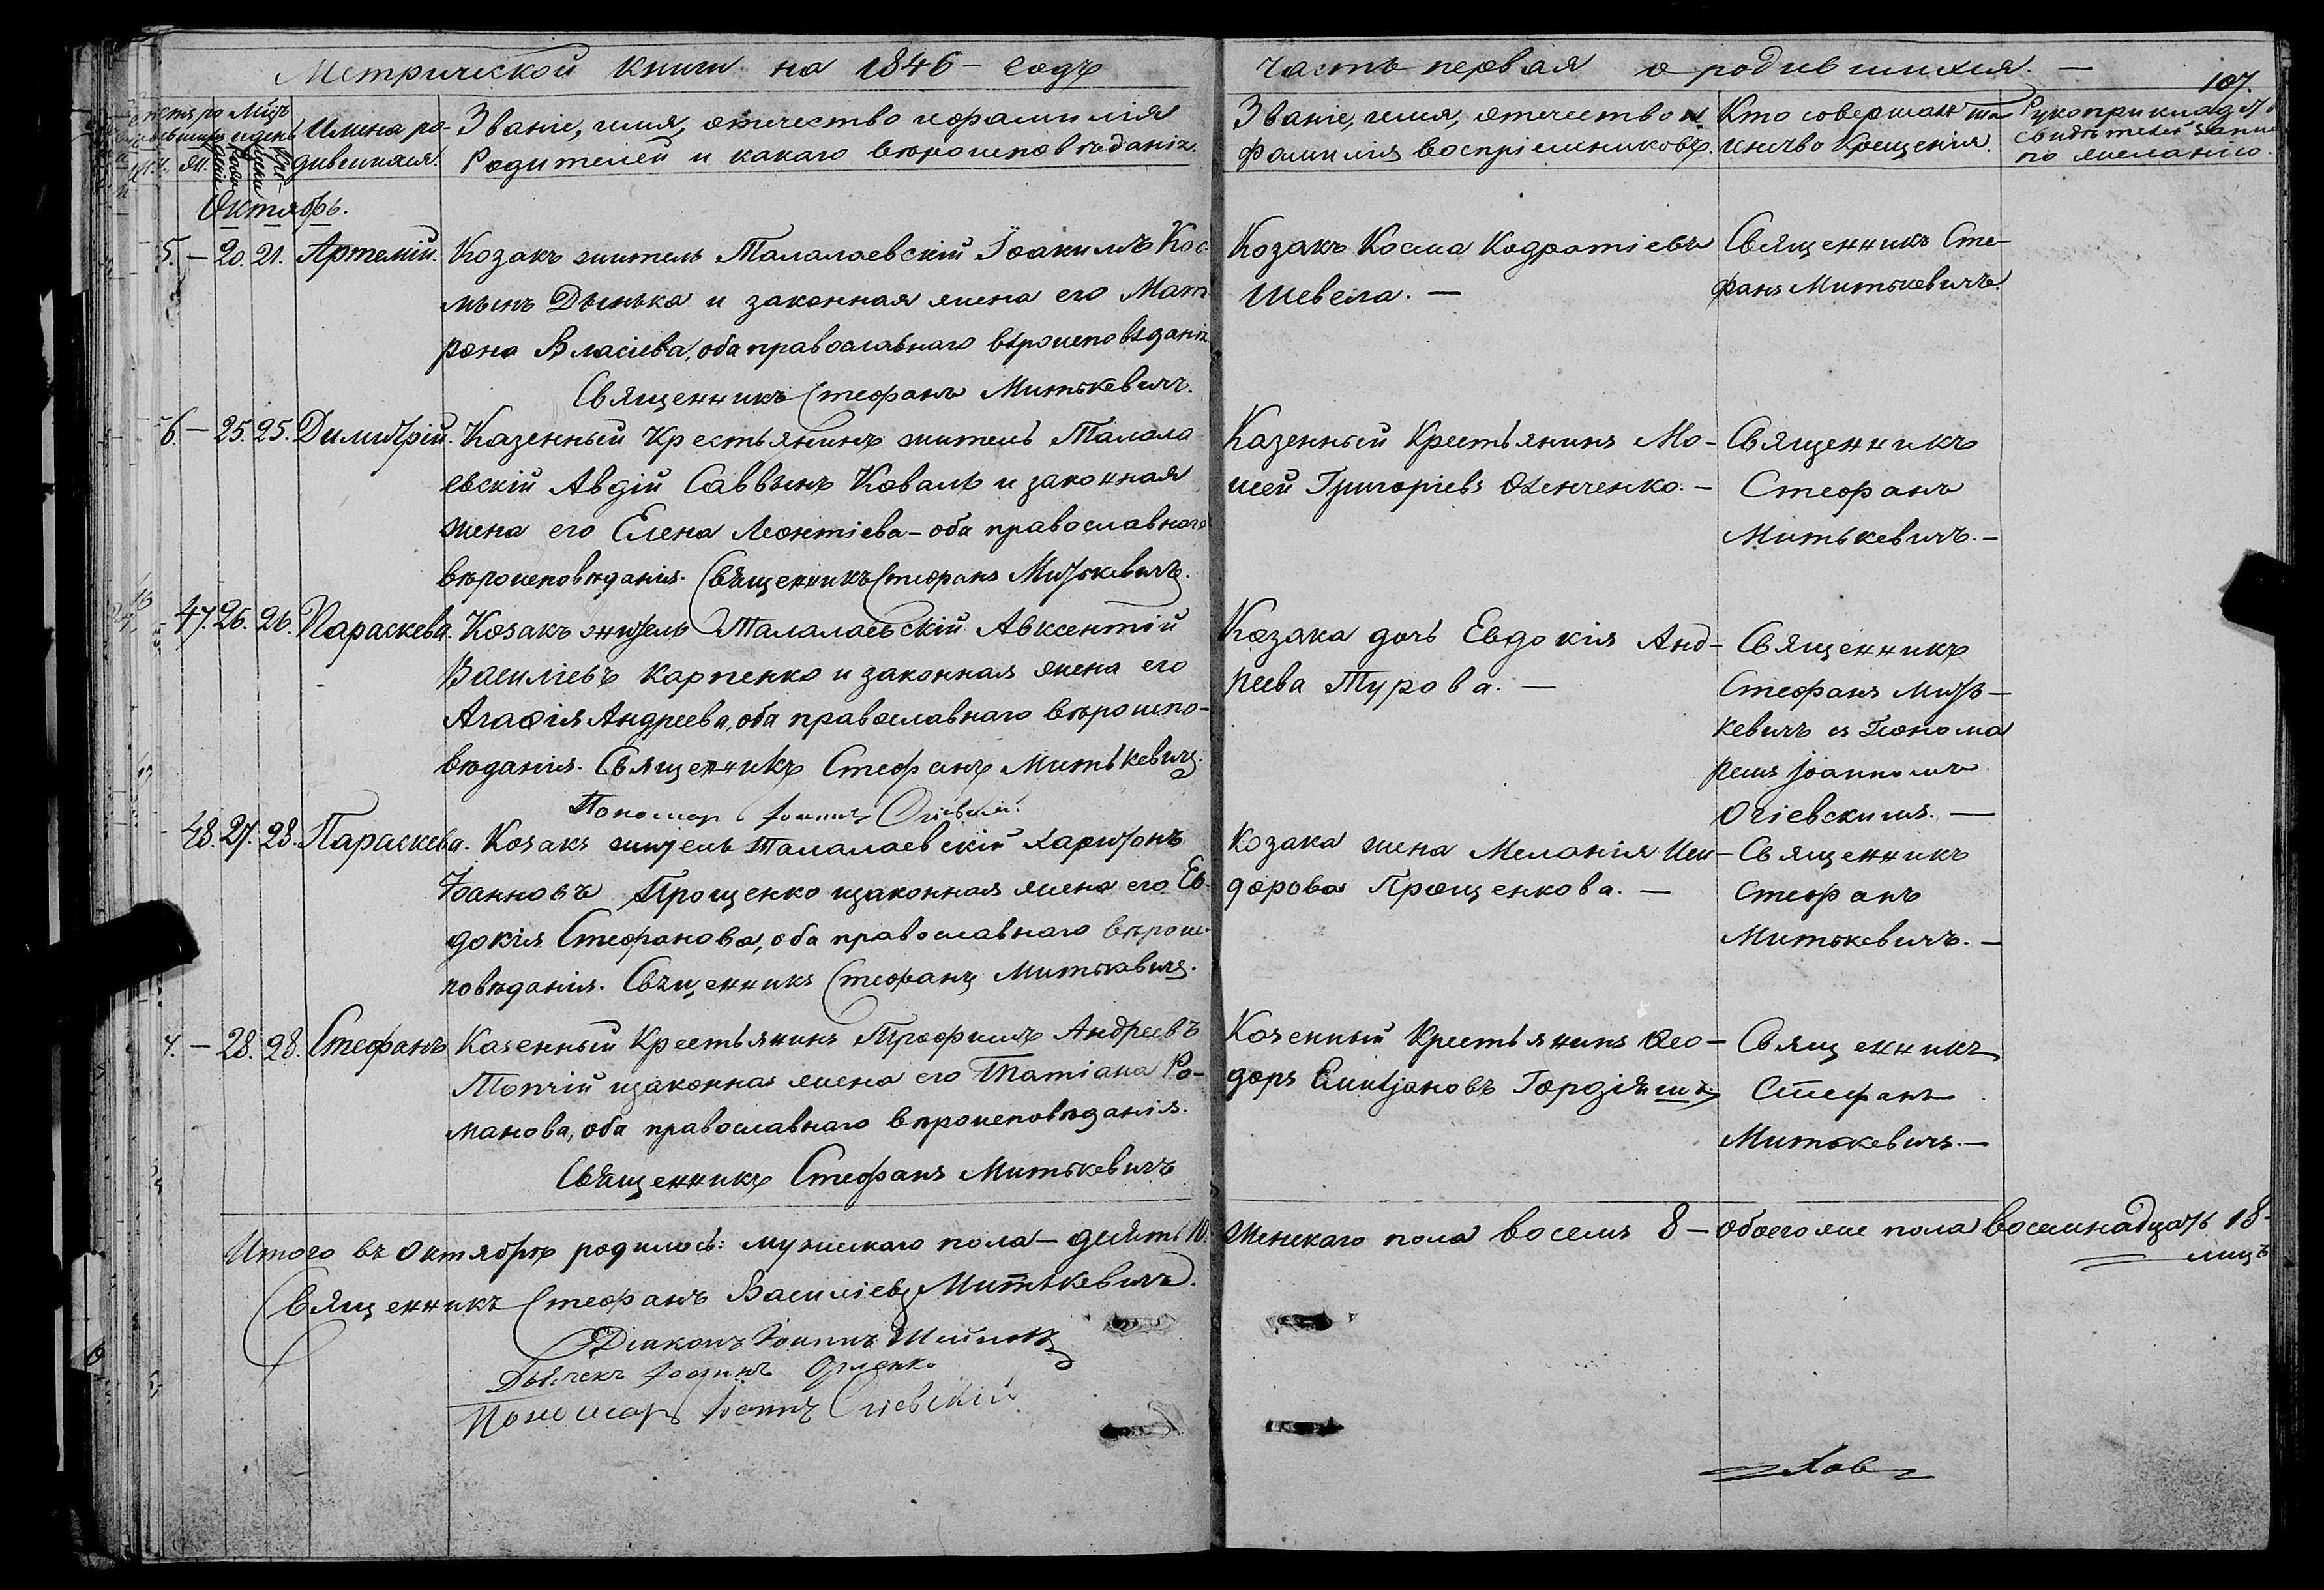 Метрической книги на 1846 – годъ
часть первая о родившихся. —
107.
Имена ро-
дившихся.
Званіе, имя, отечество и фамилія
Родителей и какаго вѣроисповѣданія.
Званіе, имя, отечество и
фамилія воспріемниковъ.
Кто совершалъ та
инство Крещенія.
Рукоприкладст.
свидѣтелей запис
по желанію.
Октябрь.
5. – 20. 21. Артемій. Козакъ житель Талалаевскій Іоакимъ Кос-
минъ Дынька и законная жена его Мат
рона Власіева, оба православнаго вѣроисповѣданія
Священникъ Стефанъ Митькевичъ.
Козакъ Косма Кодратіевъ
Шевела. —
Священникъ Сте-
фанъ Митькевичъ.
6. – 25. 25. Димитрій. Казенный Крестьянинъ житель Талала
евскій Авдій Саввинъ Коваль и законная
жена его Елена Леонтіева – оба православнаго
вѣроисповѣданія. Священникъ Стефанъ Митькевичъ.
Казенный Крестьянинъ Мо-
исей Григоріевъ –
Священникъ
Стефанъ
Митькевичъ. –
47. 26. 26. Параскева. Козакъ житель Талалаевскій Авксентій
Василіевъ Карпенко и законная жена его
Агафія Андреева, оба православнаго вѣроиспо-
вѣданія. Священникъ Стефанъ Митькевичъ.
Пономарь Іоаннъ Огіевскій.
Козака дочь Евдокія Анд-
реева Турова. —
Священникъ
Стефанъ Мить-
кевичъ съ Понома
ремъ Іоанномъ
Огіевскимъ. —
48. 27. 28. Параскева. Козакъ житель Талалаевскій Харитонъ
Іоанновъ Прощенко и законная жена его Ев-
докія Стефанова, оба православнаго вѣроис-
повѣданія. Священникъ Стефанъ Митькевичъ.
Козака жена Меланія Иси-
дорова Прощенкова. —
Священникъ
Стефанъ
Митькевичъ. –
7. – 28. 28. Стефанъ Казенный Крестьянинъ Трофимъ Андреевъ
Топчій и законная жена его Татіана Ро-
манова, оба православнаго вѣроисповѣданія.
Священникъ Стефанъ Митькевичъ
Казенный Крестьянинъ Ѳео-
доръ Емиліановъ
Священникъ
Стефанъ
Митькевичъ. –
Итого въ Октябрѣ родилось: мужескаго пола – десять 10. Женскаго пола восемь 8 – обоего же пола восемнадцать 18 –
лицъ
Священникъ Стефанъ Василіевъ Митькевичъ.
Діаконъ Іоаннъ
Дьячекъ Іоаннъ
Пономарь Іоаннъ Огіевскій.